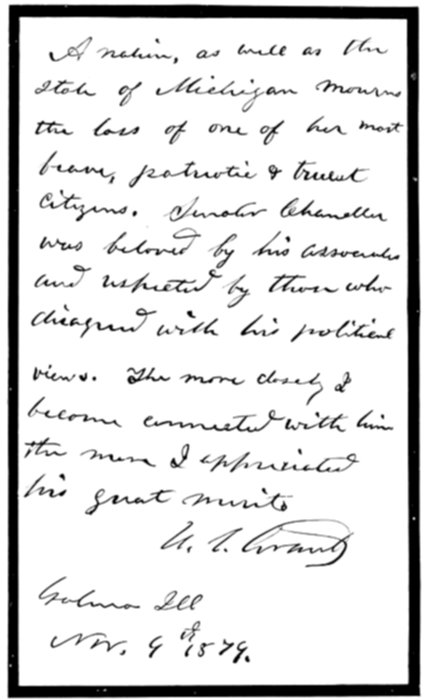 A nation, as well as the
state of Michigan mourns
the loss of one of her most
brave, patriotic & truest
citizens. Senator Chandler
was beloved by his associates
and respected by those who
disagreed with his political
views. The more closely I
become connected with him
the more I appreciated
his great merits
U. S. Grant
Galena Ill
Nov. 9th 1879.